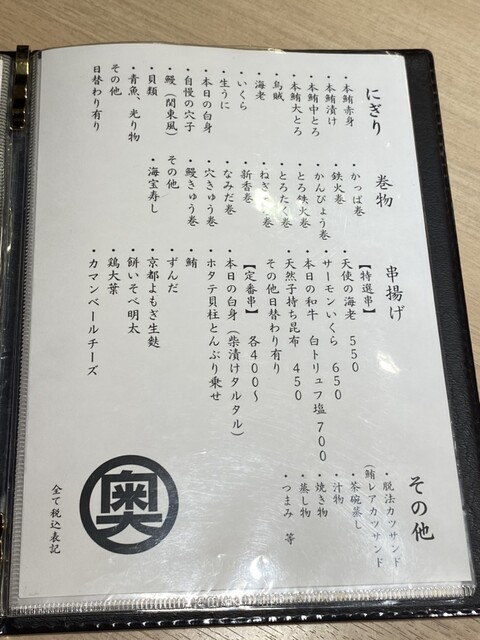 にぎり
・本鮪赤身
・本鮪漬け
・本鮪中とろ
・本鮪大とろ
・烏賊
・海老
・いくら
・生うに
・本日の白身
・自慢の穴子
・鰻(関東風)
・貝類
・青魚、光り物
その他
日替わり有り
巻物
・かっぱ巻
・鉄火巻
・かんぴょう巻
・とろ鉄火巻
・とろたく巻
・新香巻
・なみだ巻
・穴きゅう巻
・鰻きゅう巻
その他
・海宝寿し
串揚げ
【特選串】
・天使の海老 550
・サーモンいくら 650
・本日の和牛 白トリュフ塩 700
・天然子持ち昆布 450
その他日替わり有り
【定番串】 各400〜
・本日の白身(柴漬けタルタル)
・ホタテ貝柱とんぶり乗せ
・鮪
・ずんだ
・京都よもぎ生麩
・餅いそべ明太
・鶏大葉
・カマンベールチーズ
その他
(鮪レアカツサンド
・茶碗蒸し
・汁物
・焼き物
・蒸し物
・つまみ 等
奥
全て税込表記